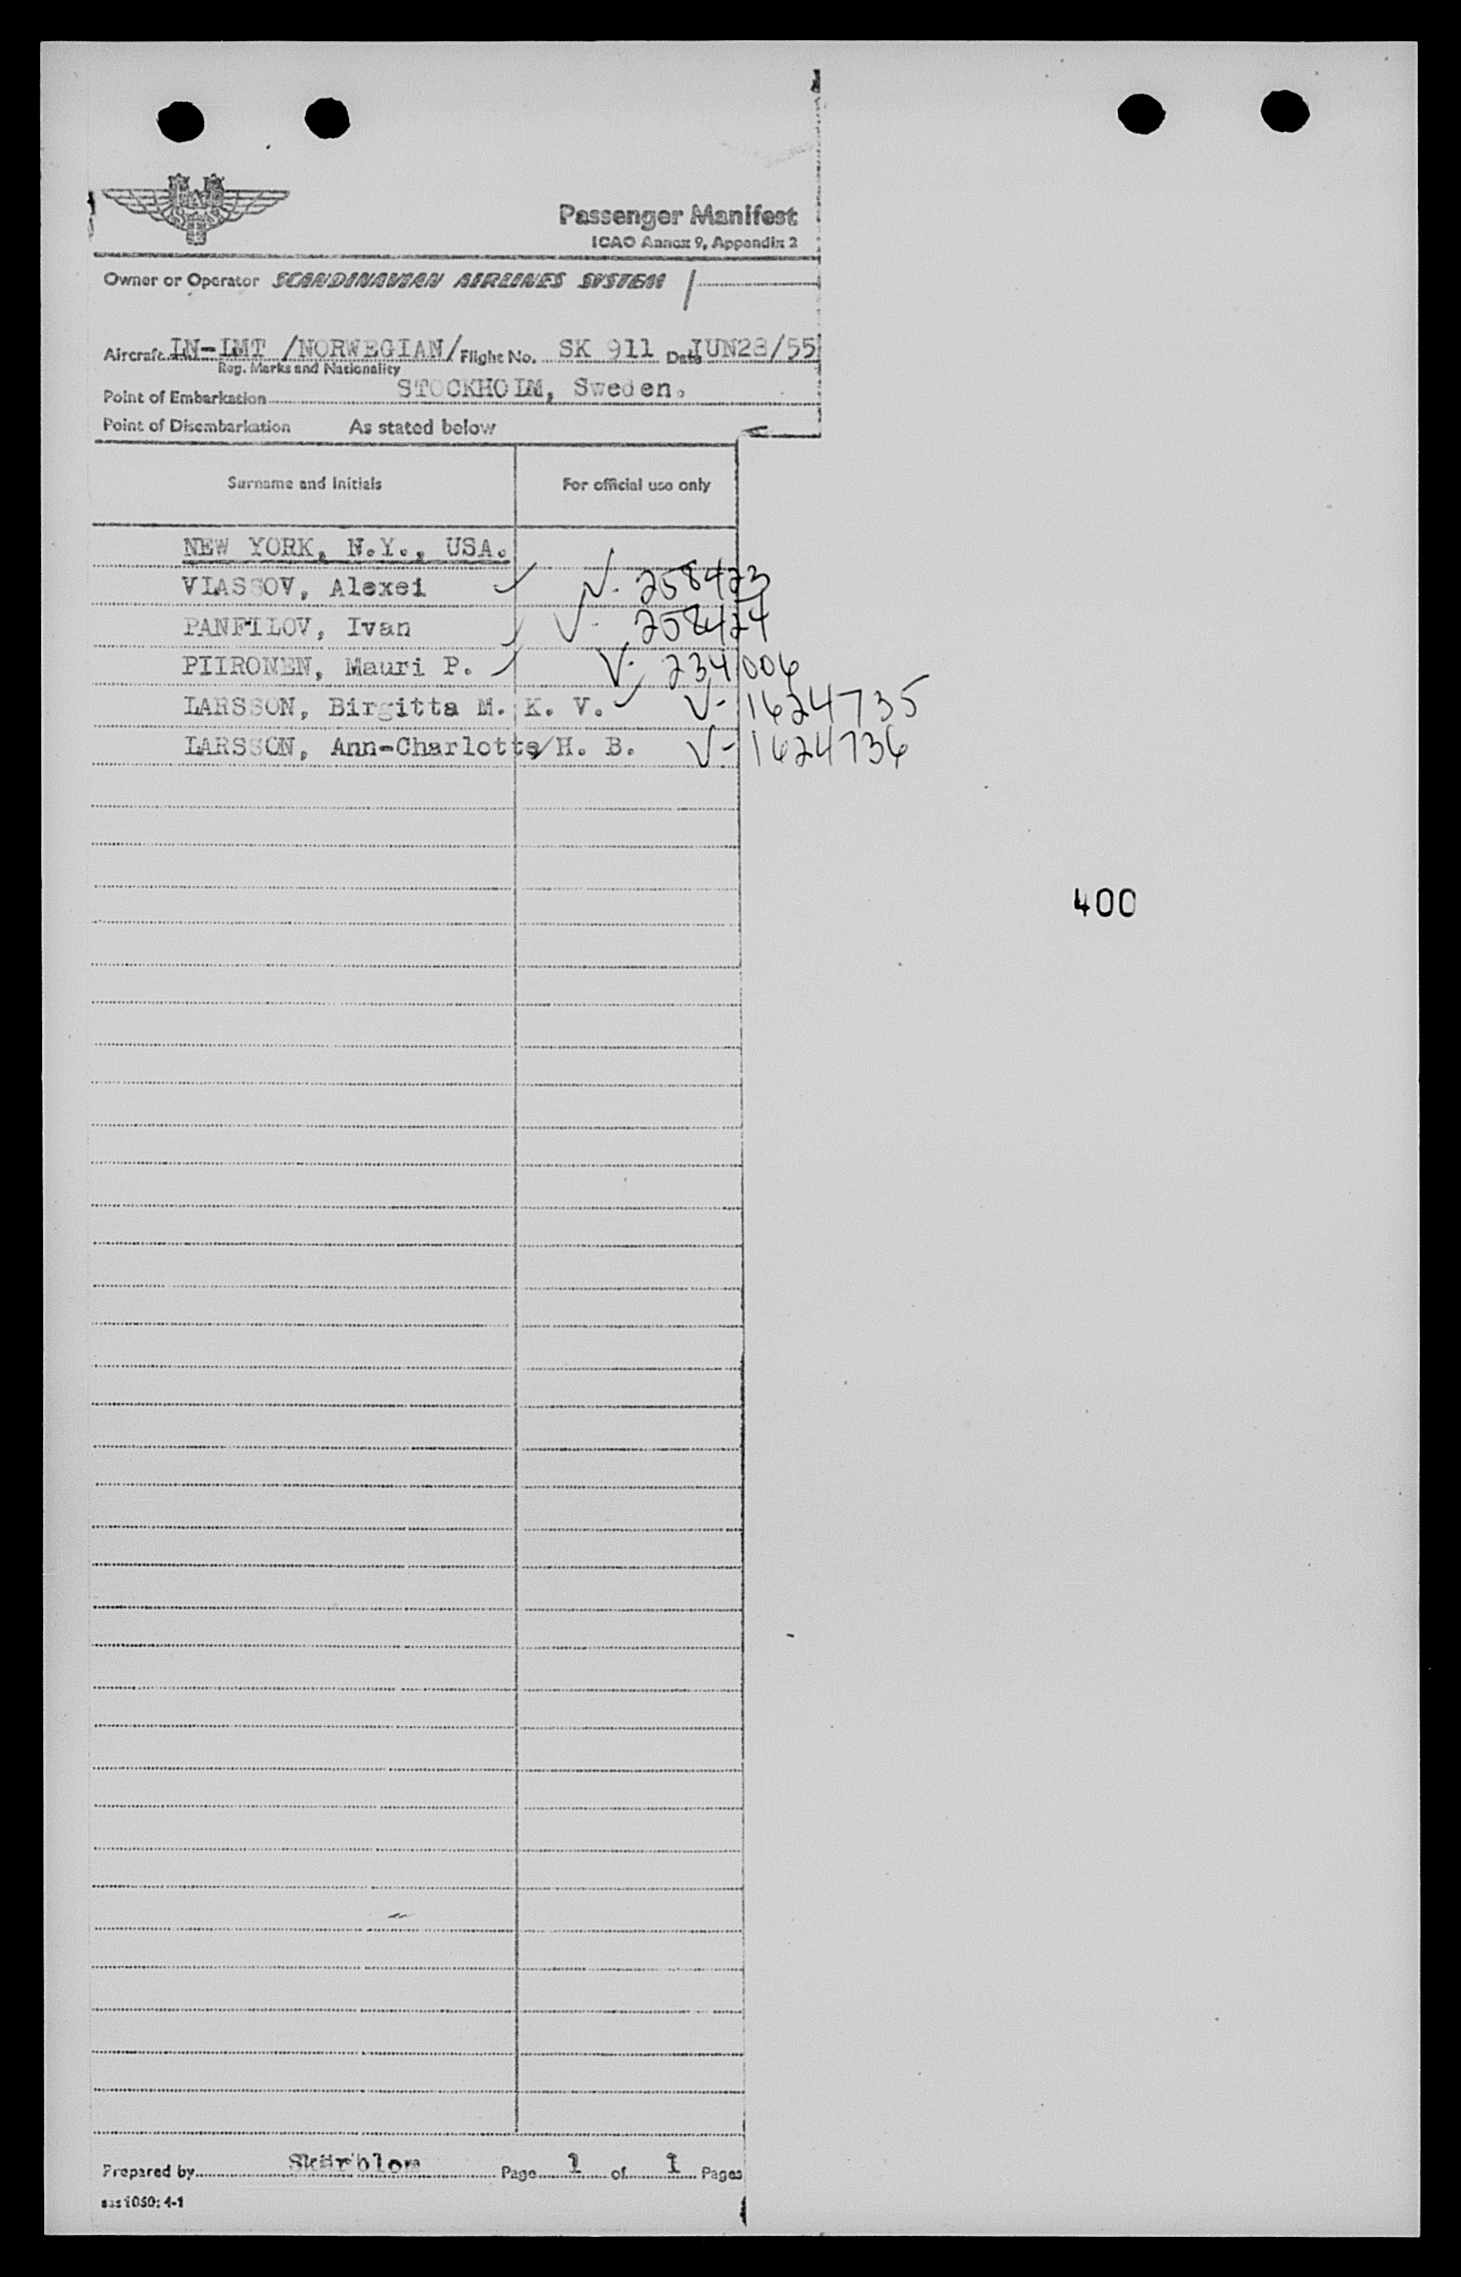 Passenger Manifest
ICAO Annex 9, Appendix 2
Owner or Operator SCANDINAVIAN AIRLINES SYSTEM
Aircraft LN-LMT /NORWEGIAN/ Flight No. SK 911 Date JUN28/55
Reg. Marks and Nationality
Point of Embarkation STOCKHOLM, Sweden.
Point of Disembarkation As stated below
Surname and Initials For official use only
NEW YORK, N.Y., USA.
VLASSOV, Alexei V- 258423
PANFILOV, Ivan V- 258424
PIIRONEN, Mauri P. V- 234006
LARSSON, Birgitta M. K. V. V- 1624735
LARSSON, Ann-Charlotte H. B. V- 1624736
400
Prepared by Page 1 of 1 Pages